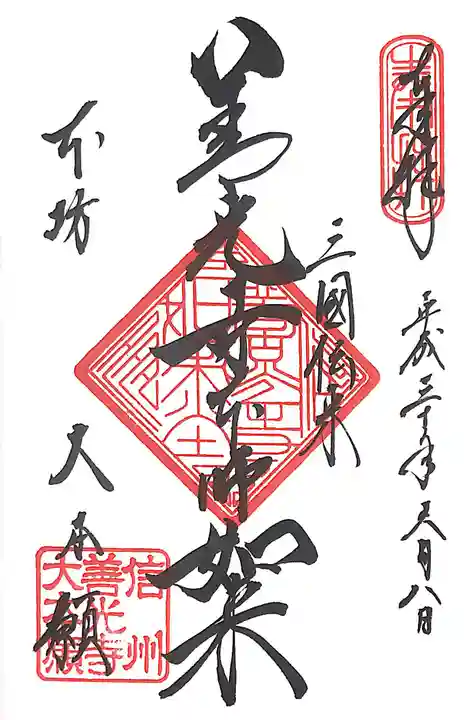 奉拝
平成三十年六月八日
三國伝来
善光寺本師如来
本坊 大本願
信州
善光寺
大本願